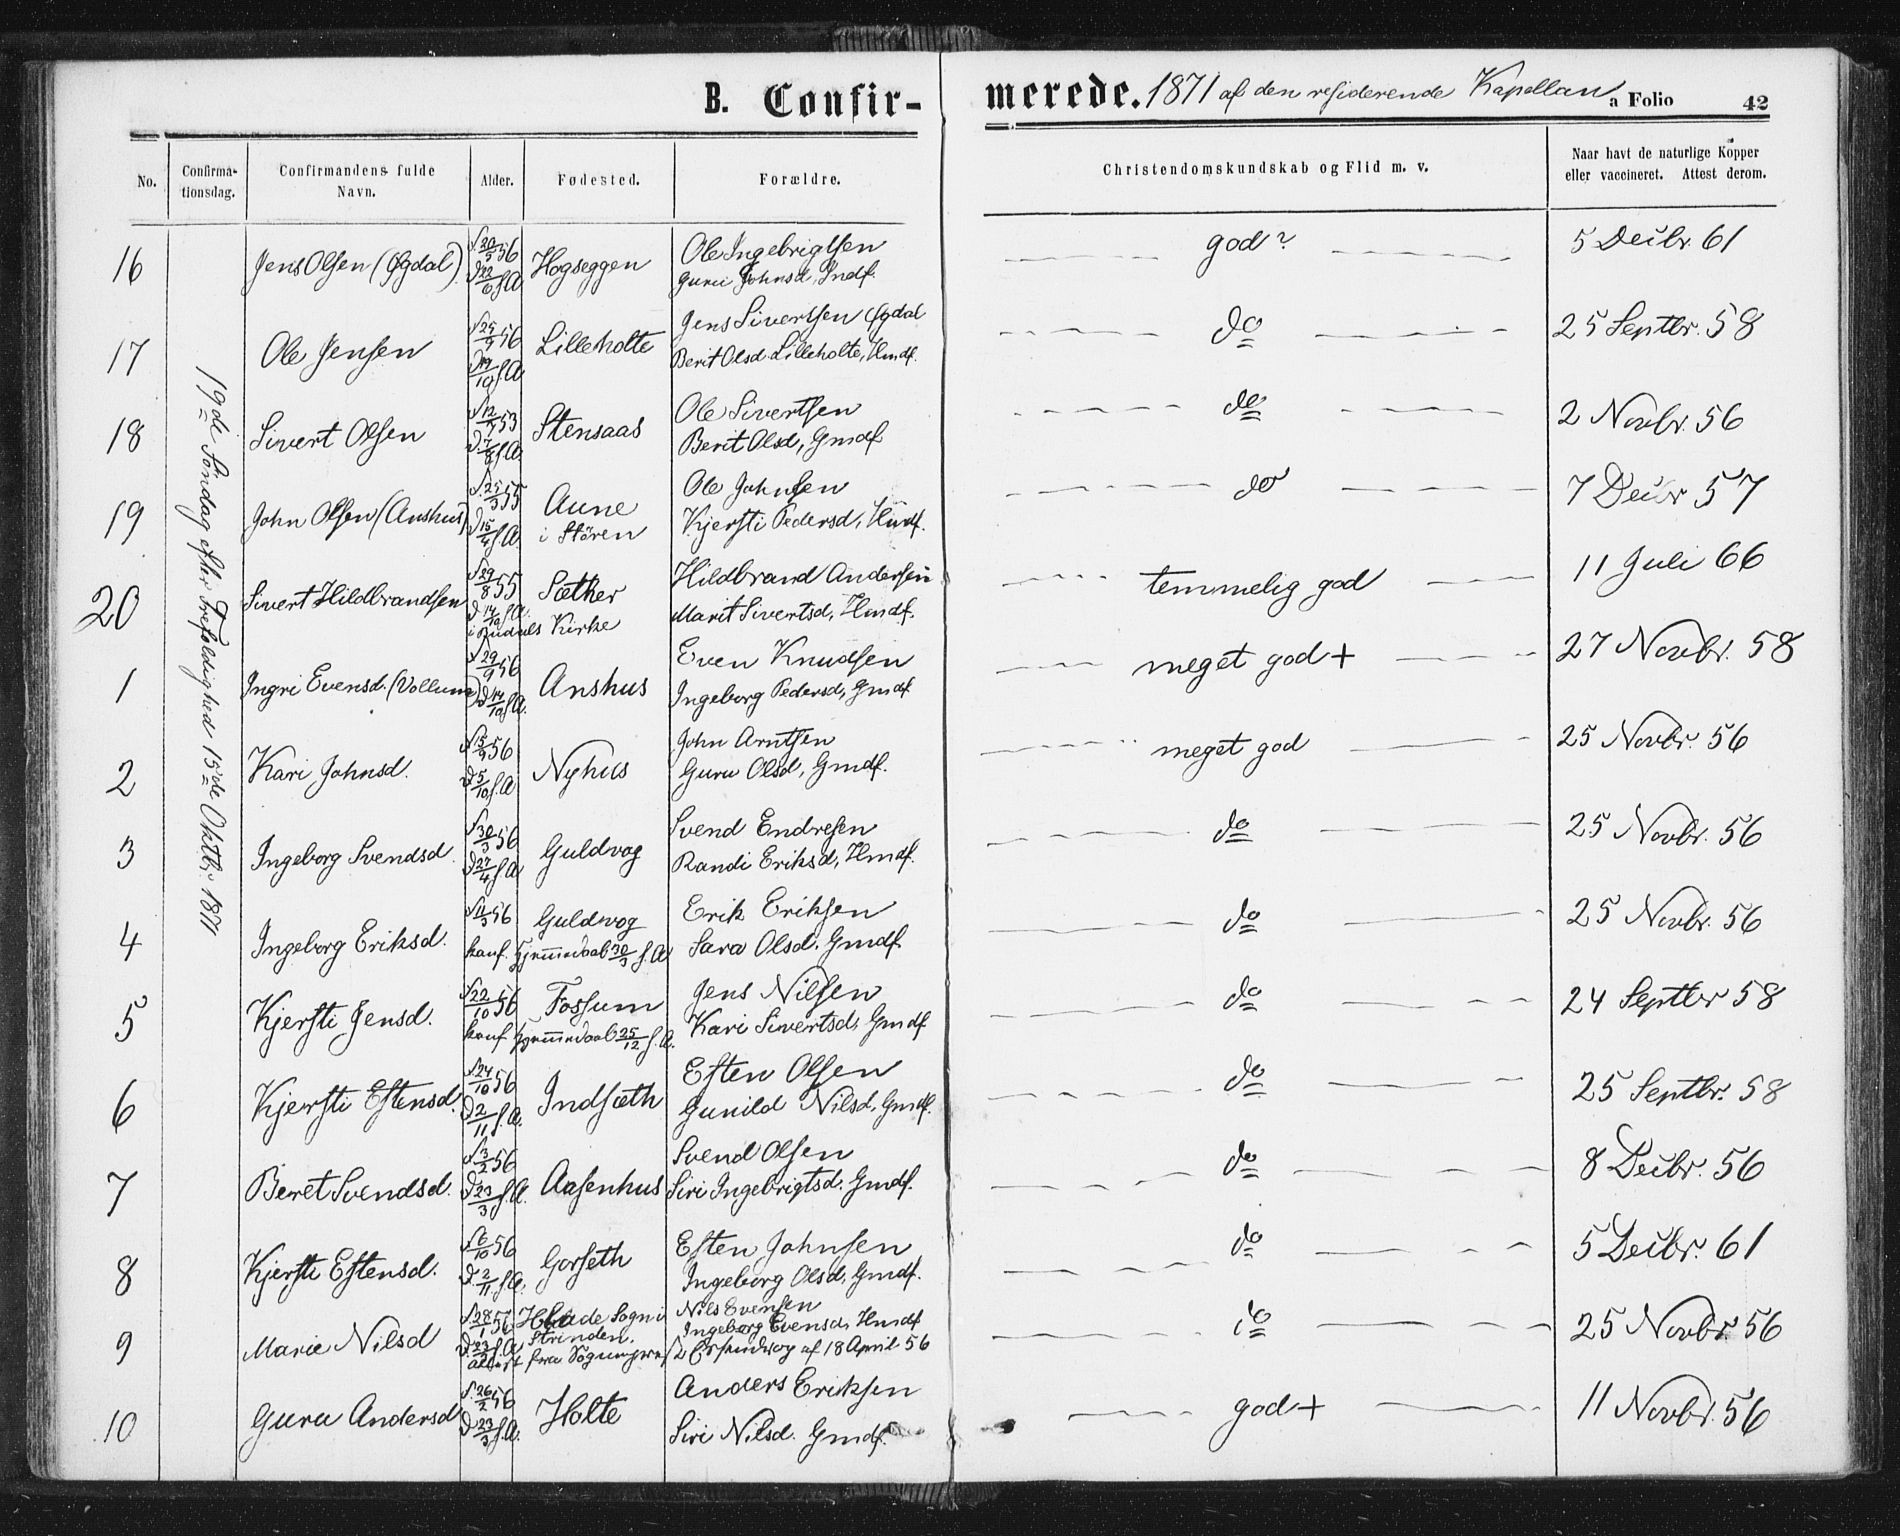 B. Confir-
merede. 1871 af den residerende Kapellan a Folio 42
No. Confirmationsdag. Confirmandens fulde Navn. Alder. Fødested. Forældre. Christendomskundskab og Flid m. v. Naar havt de naturlige Kopper eller vaccineret. Attest derom.
19de Søndag efter Trefoldighed 15de Oktbr. 1871
16 Jens Olsen (Øgdal) f. 20/5 56 Hogseggen Ole Ingebrigtsen god? 5 Decbr. 61
d. 22/6 s.A. Guru Johnsd, Indf.
17 Ole Jensen f. 25/9 56 Lilleholte Jens Sivertsen Øgdal do 25 Septbr. 58
d. 19/10 s.A. Berit Olsd. Lilleholte, Hmdf.
18 Sivert Olsen f. 12/7 53 Stensaas Ole Sivertsen do 2 Novbr. 56
d. 7/8 s.A. Berit Olsd, Gmdf
19 John Olsen (Anshus) f. 25/3 55 Aune Ole Johnsen do 7 Decbr 57
d. 15/4 s.A. i Støren Kjersti Pedersd, Hmdf.
20 Sivert Hildbrandsen f. 29/8 55 Sæther Hildbrand Andersen temmelig god 11 Juli 66
d. 14/10 s.A. i Budals Kirke Marit Sivertsd, Hmdf.
1 Ingri Evensd. (Vollum) f. 29/9 56 Anshus Even Knudsen meget god + 27 Novbr. 58
d. 14/10 s.A. Ingeborg Pedersd, Gmdf
2 Kari Johnsd. f. 15/9 56 Nyhus John Arntsen meget god 25 Novbr. 56
d. 5/10 s.A Guru Olsd, Gmdf.
3 Ingeborg Svendsd. f. 30/3 56 Guldvog Svend Endresen do 25 Novbr. 56
d. 27/4 s.A Randi Eriksd, Hmdf.
4 Ingeborg Eriksd. f. 11/3 56 Guldvog Erik Eriksen do 25 Novbr. 56
konf. hjemmedaab 30/3 s.A. Sara Olsd. Gmdf.
5 Kjersti Jensd. f. 22/10 56 Fossum Jens Nilsen do 24 Septbr 58
konf hjemmedaab 25/12 s.A. Kari Sivertsd, Gmdf
6 Kjersti Estensd. f. 24/10 56 Indsæth Esten Olsen do 25 Septbr. 58
d. 2/11 s.A. Gunild Nilsd, Gmdf.
7 Beret Svendsd. f. 3/2 56 Aasenhus Svend Olsen do 8 Decbr. 56
d. 23/3 s.A. Siri Ingebrigtsd. Gmdf.
8 Kjersti Estensd. f. 6/10 56 Gorseth Esten Johnsen do 5 Decbr. 61
d. 2/11 s.A. Ingeborg Olsd, Gmdf.
9 Marie Nilsd f. 28/1 56 Hlade Sogn i Strinden. Nils Evensen do 25 Novbr. 56
Ingeborg Evensd, Hmdf
attest fra Sogneprest af 18 April 56
10 Guru Andersd f. 26/2 56 Holte Anders Eriksen god + 11 Novbr. 56
d. 23/3 s.A. Siri Nilsd. Gmdf.